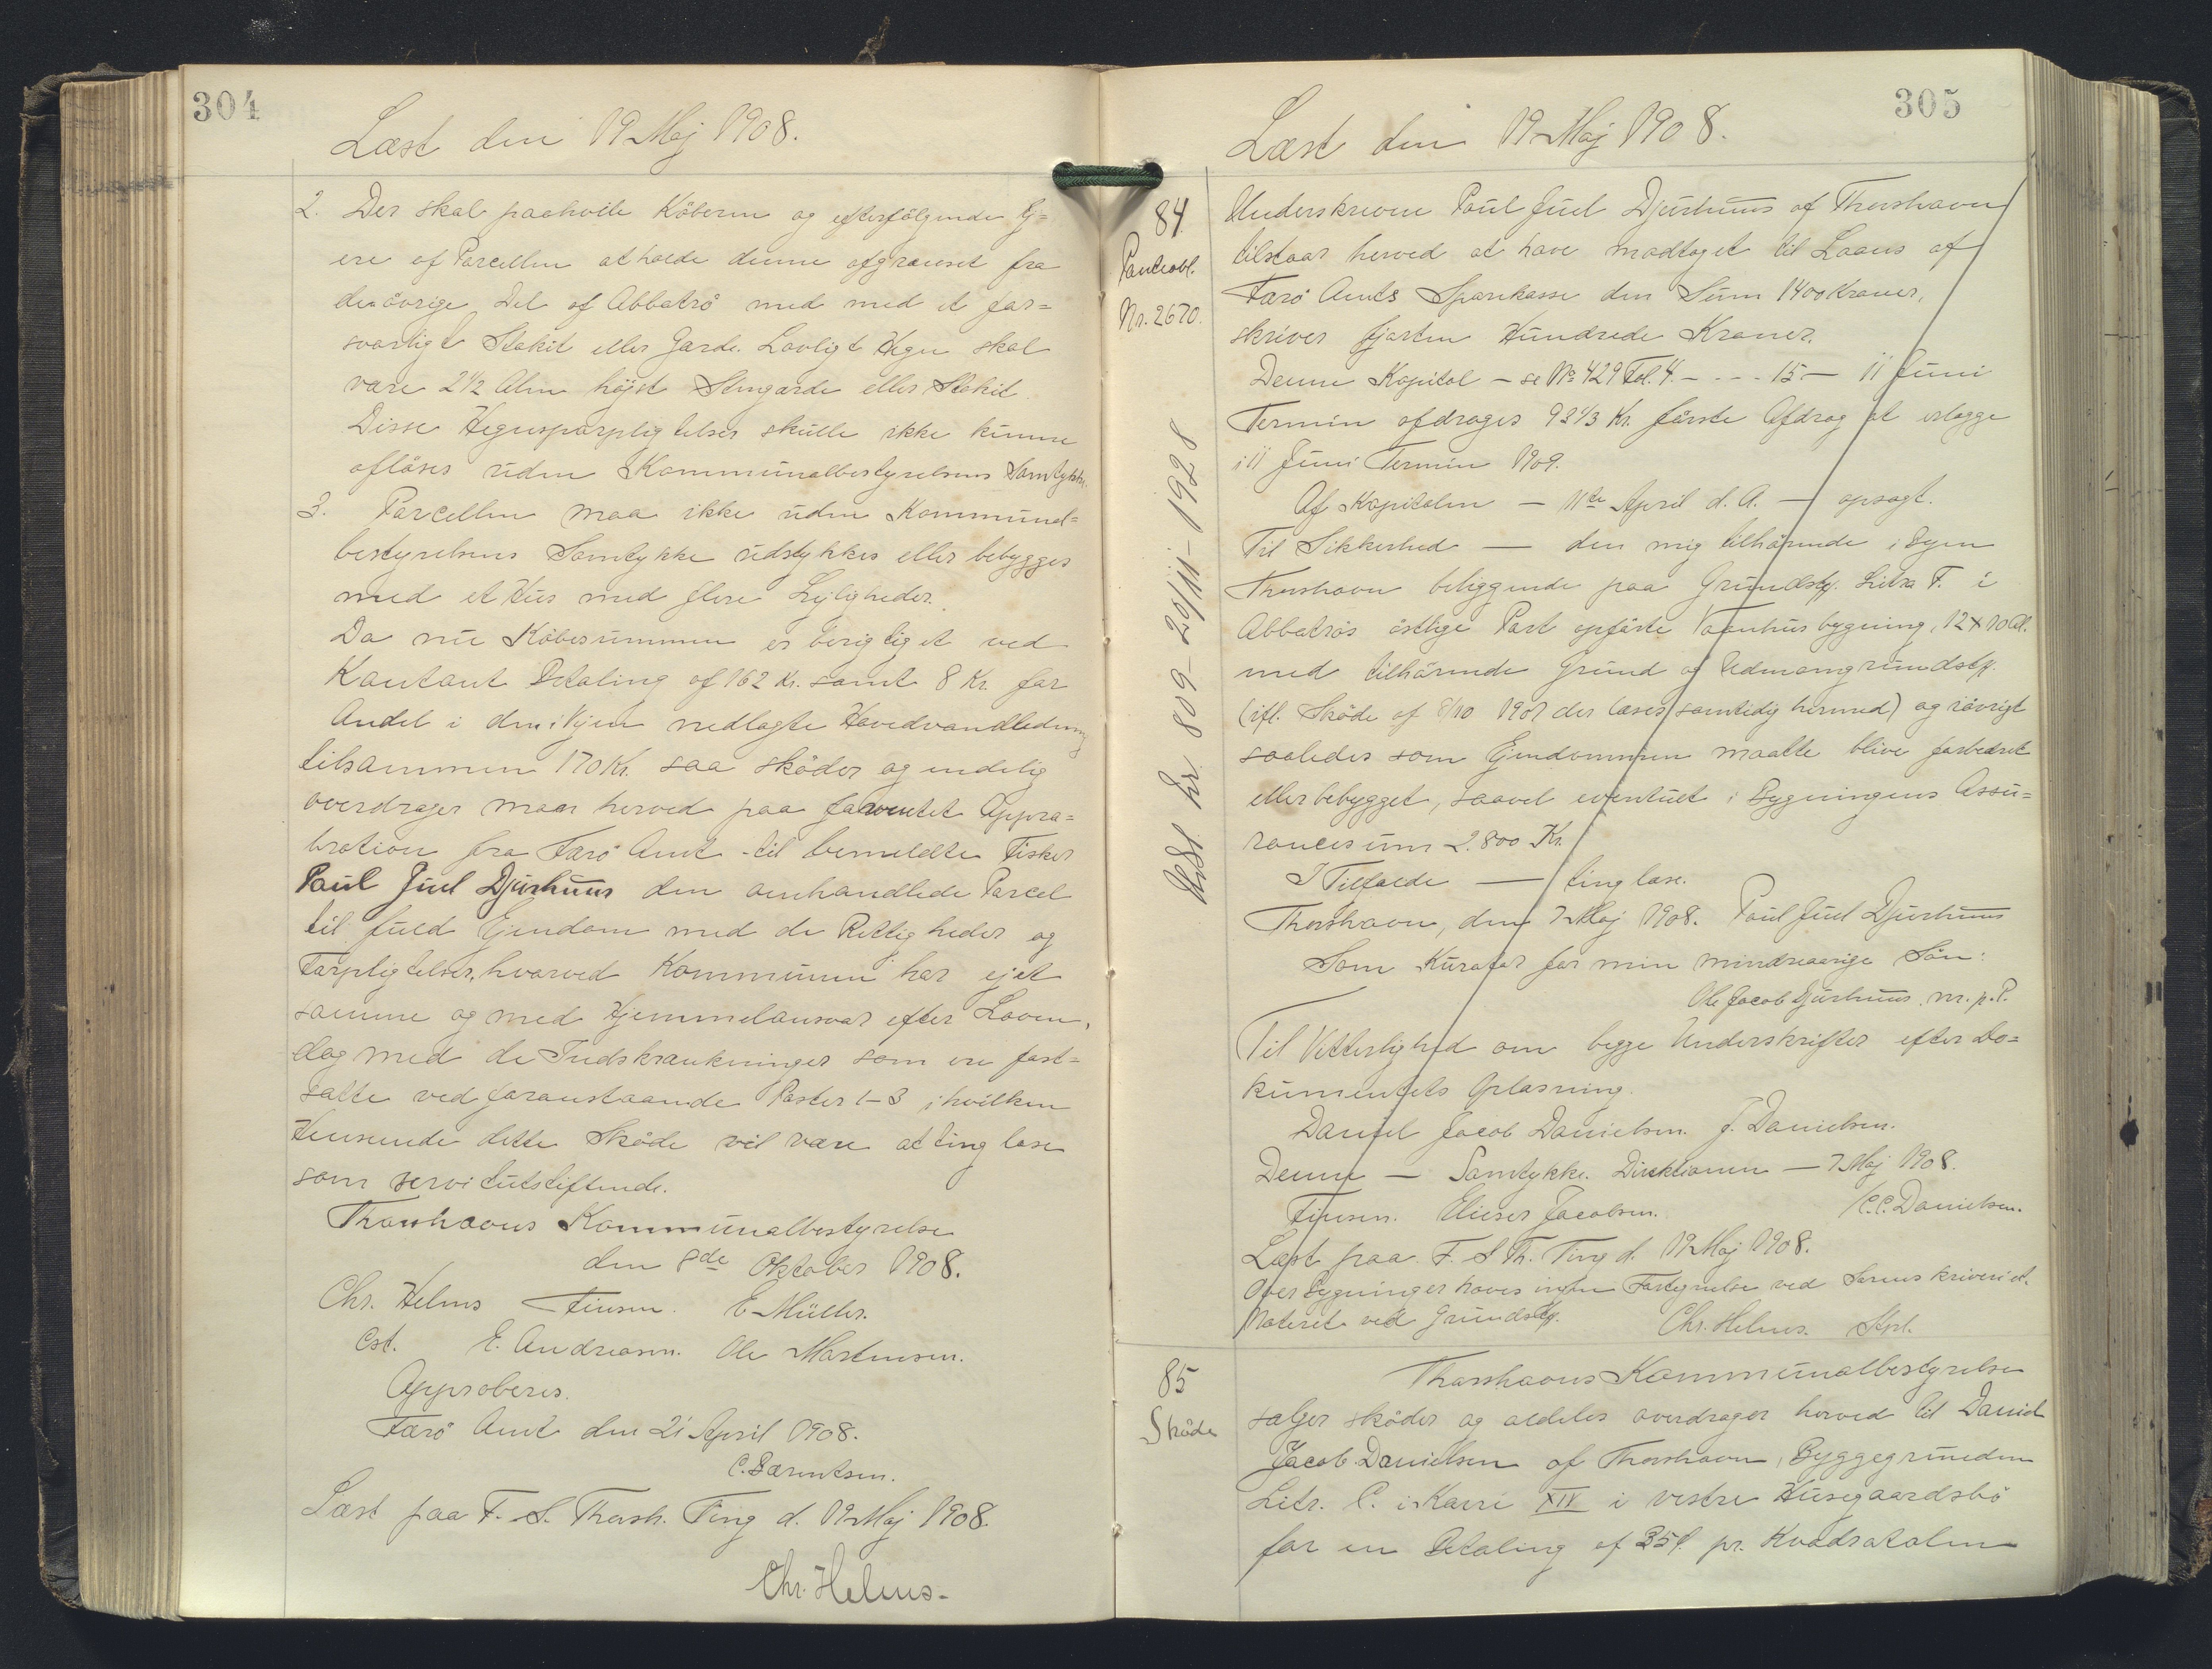 304
Læst den 19 Maj 1908.
2. Der skal paahvile Köberen og efterfölgende Ej=
ere af Parcellen at holde denne afgrænset fra
den övrige Del af Abbatrö med med et for=
svarligt Stakit eller Gærde. Lovligt Hegn skal
være 2 1/2 Alen höjt Stengærde eller Stakit.
Disse Hegnsforpligtelser skulle ikke kunne
aflöses uden Kommunalbestyrelsens Samtykke.
3. Parcellen maa ikke uden Kommunal=
bestyrelsens Samtykke udstykkes eller bebygges
med et Hus med flere Lejligheder.
Da nu Köbesummen er berigtiget ved
Kontant Betaling af 162 Kr. samt 8 Kr. for
Andel i den i Vejen nedlagte Hovedvandledning
tilsammen 170 Kr. saa sköder og endelig
overdrager man herved paa forventet Appro=
bration fra Færö Amt til bemeldte Fisker
Paul Juel Djurhuus den omhandlede Parcel
til fuld Ejendom med de Rettigheder og
Forpligtelser, hvorved Kommunen har ejet
samme og med Hjemmelansvar efter Loven,
dog med de Indskrænkninger som ere fast=
satte ved foranstaaende Poster 1-3 i hvilken
Henseende dette Sköde vil være at tinglæse
som servitutstiftende.
Thorshavns Kommunalbestyrelse
den 8de Oktober 1908.
Chr. Helms Finsen. E. Müller.
Cst. E. Andreasen. Ole Mortensen.
Approberes.
Færö Amt den 21 April 1908.
C. Bærentsen.
Læst paa F. S. Thorsh. Ting d. 19 Maj 1908.
Chr. Helms.
305
Læst den 19 Maj 1908.
84
Panteobl.
Nr. 2670.
Udsl. Kr 809 - 29/11 - 1928
Underskrevne Paul Juel Djurhuus af Thorshavn
tilstaar herved at have modtaget til Laans af
Færö Amts Sparekasse den Sum 1400 Kroner,
skriver fjorten Hundrede Kroner.
Denne Kapital - se No 429 Fol. 4. - - - - 15 - 11 Juni
Termin afdrages 93 1/3 Kr. förste Afdrag at erlægge
i 11 Juni Termin 1909.
Af Kapitalen - 11te April d. A. - opsagt.
Til Sikkerhed - den mig tilhörende i Byen
Thorshavn beliggende paa Grundstk. Litra F. i
Abbatrös östlige Part opförte Vaanhusbygning, 12 x 10 Al.
med tilhörende Grund og Udmarksgrundstk.
(ifl. Sköde af 8/10 1907 der læses samtidig hermed) og iövrigt
saaledes som Ejendommen maatte blive forbedret
eller bebygget, saavel eventuelt i Bygningens Assu=
rancesum 2.800 Kr.
I Tilfælde - tinglæse.
Thorshavn, den 7 Maj 1908. Paul Juel Djurhuus
Som Kurator for min mindreaarige Sön:
Ole Jacob Djurhuus. m. p. P.
Til Vitterlighed om begge Underskrifter efter Do=
kumentets Oplæsning.
Daniel Jacob Danielsen. J. Danielsen.
Denne - Samtykke. Direktionen - 7 Maj 1908.
Finsen. Elieser Jacobsen. C.C. Danielsen.
Læst paa F. S. Th. Ting d. 19 Maj 1908.
Over Bygninger haves ingen Fortegnelse ved Sorenskriveriet.
Noteret ved Grundstk. Chr. Helms. Kpt.
85
Sköde
Thorshavns Kommunalbestyrelse
sælger sköder og aldeles overdrager herved til Daniel
Jacob Danielsen af Thorshavn, Byggegrunden
Litr. C. i Karré XIV i vestre Husegaardsbö
for en Betaling af 35 f. pr. Kvadratalen